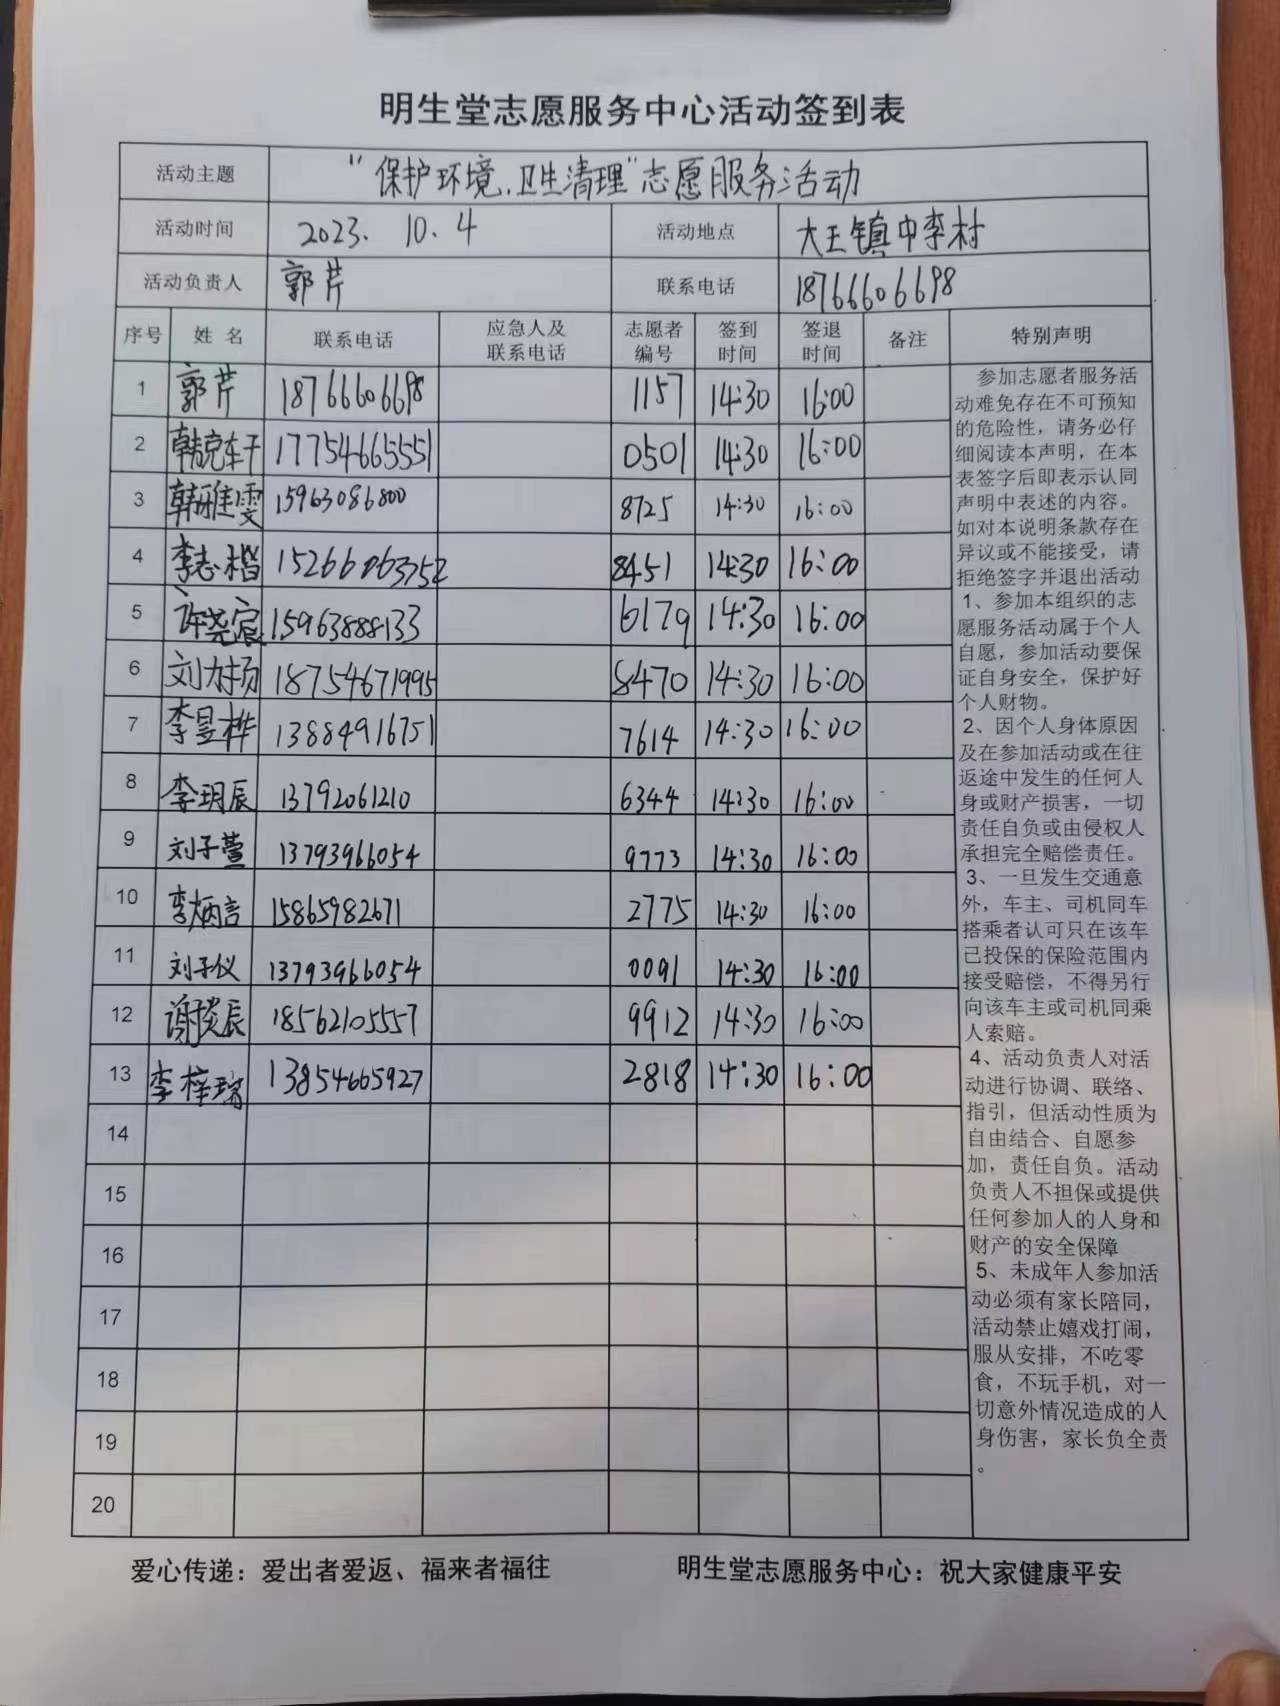 明生堂志愿服务中心活动签到表
活动主题 “保护环境.卫生清理”志愿服务活动
活动时间 2023. 10. 4 活动地点 大王镇中李村
活动负责人 郭芹 联系电话 18766606698
序号 姓 名 联系电话 应急人及联系电话 志愿者编号 签到时间 签退时间 备注 特别声明
1 郭芹 18766606698 1157 14:30 16:00
2 17754665551 0501 14:30 16:00
3 韩雅雯 15963086800 8725 14:30 16:00
4 李志楷 15266063752 8451 14:30 16:00
5 许尧宸 15963888133 6179 14:30 16:00
6 刘力扬 18754671995 8470 14:30 16:00
7 李昱桦 13884916751 7614 14:30 16:00
8 李玥辰 13792061210 6344 14:30 16:00
9 刘子萱 13793966054 9773 14:30 16:00
10 李炳言 15865982671 2775 14:30 16:00
11 刘子仪 13793966054 0091 14:30 16:00
12 18562105557 9912 14:30 16:00
13 李梓瑞 13854665927 2818 14:30 16:00
14
15
16
17
18
19
20
参加志愿者服务活
动难免存在不可预知
的危险性，请务必仔
细阅读本声明，在本
表签字后即表示认同
声明中表述的内容。
如对本说明条款存在
异议或不能接受，请
拒绝签字并退出活动
1、参加本组织的志
愿服务活动属于个人
自愿，参加活动要保
证自身安全，保护好
个人财物。
2、因个人身体原因
及在参加活动或在往
返途中发生的任何人
身或财产损害，一切
责任自负或由侵权人
承担完全赔偿责任。
3、一旦发生交通意
外，车主、司机同车
搭乘者认可只在该车
已投保的保险范围内
接受赔偿，不得另行
向该车主或司机同乘
人索赔。
4、活动负责人对活
动进行协调、联络、
指引，但活动性质为
自由结合、自愿参
加，责任自负。活动
负责人不担保或提供
任何参加人的人身和
财产的安全保障
5、未成年人参加活
动必须有家长陪同，
活动禁止嬉戏打闹，
服从安排，不吃零
食，不玩手机，对一
切意外情况造成的人
身伤害，家长负全责
。
爱心传递：爱出者爱返、福来者福往 明生堂志愿服务中心：祝大家健康平安